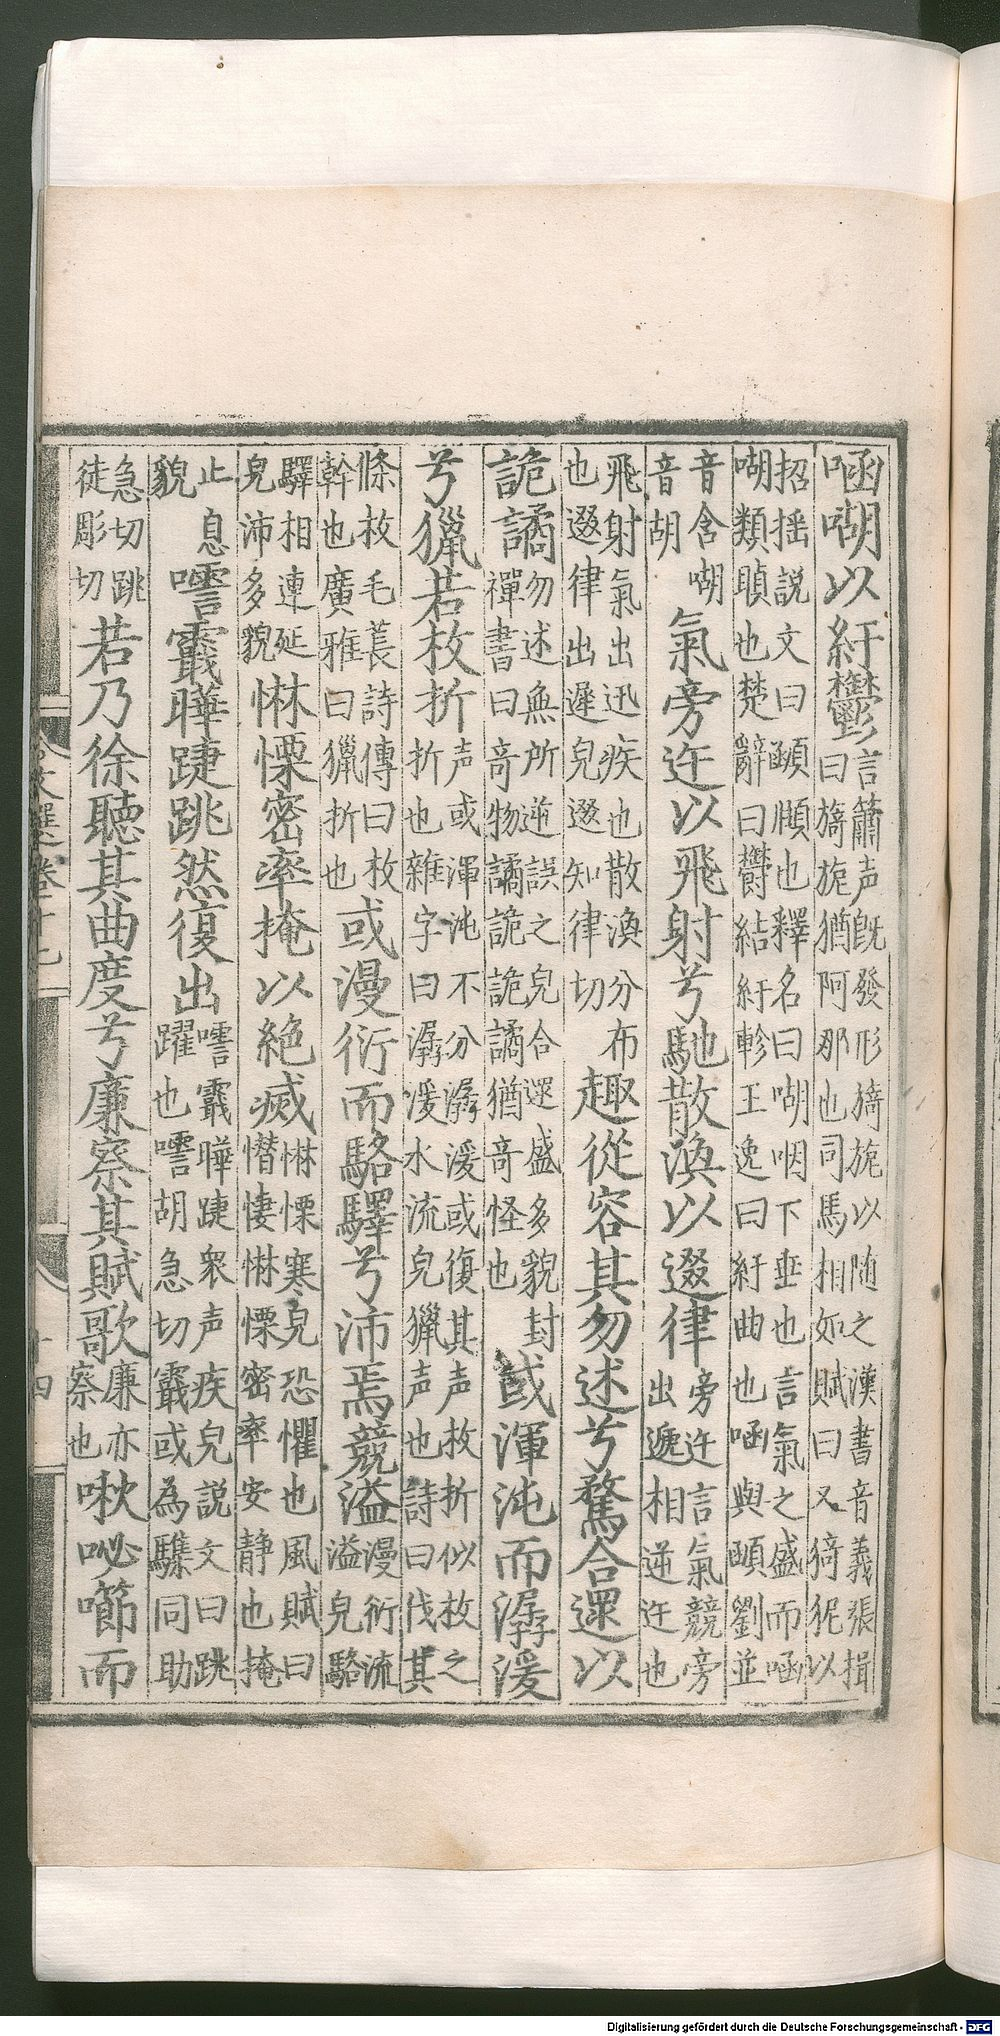 㖤㗅以紆鬱言簫声既發形旖旎以随之漢書音義張揖曰旖旎猶阿那也司馬相如賦曰又猗狔以
招揺説文曰頤顄也釋名曰㗅咽下垂也言氣之盛而㖤㗅類頤也楚辭曰欝結紆軫王逸曰紆曲也㖤與頤劉並
音含㗅音胡氣旁迕以飛射兮馳散渙以逫律旁迕言氣競旁出遞相逆迕也
飛射氣出迅疾也散渙分布也逫律出遲皃逫知律切趣從容其勿述兮騖合遝以
詭譎勿述無所逆誤之皃合遝盛多貌封禪書曰奇物譎詭詭譎猶奇怪也或渾沌而潺湲
兮獵若枚折声或渾沌不分潺湲或復其声枚折似枚之折也雜字曰潺湲水流皃獵声也詩曰伐其
條枚毛萇詩傳曰枚幹也廣雅曰獵折也或漫衍而駱驛兮沛焉競溢漫衍流溢皃駱
驛相連延皃沛多貌惏慄密率掩以絶滅惏慄寒皃恐懼也風賦曰憯悽惏慄密率安静也掩
止息貌嚖霵曄踕跳然復出嚖霵曄踕衆声疾皃説文曰跳躍也嚖胡急切霵或為驜同助
急切跳徒彫切若乃徐聽其曲度兮廉察其賦歌廉亦察也啾咇㘉而
文選卷十七
十四
Digitalisierung gefördert durch die Deutsche Forschungsgemeinschaft - DFG